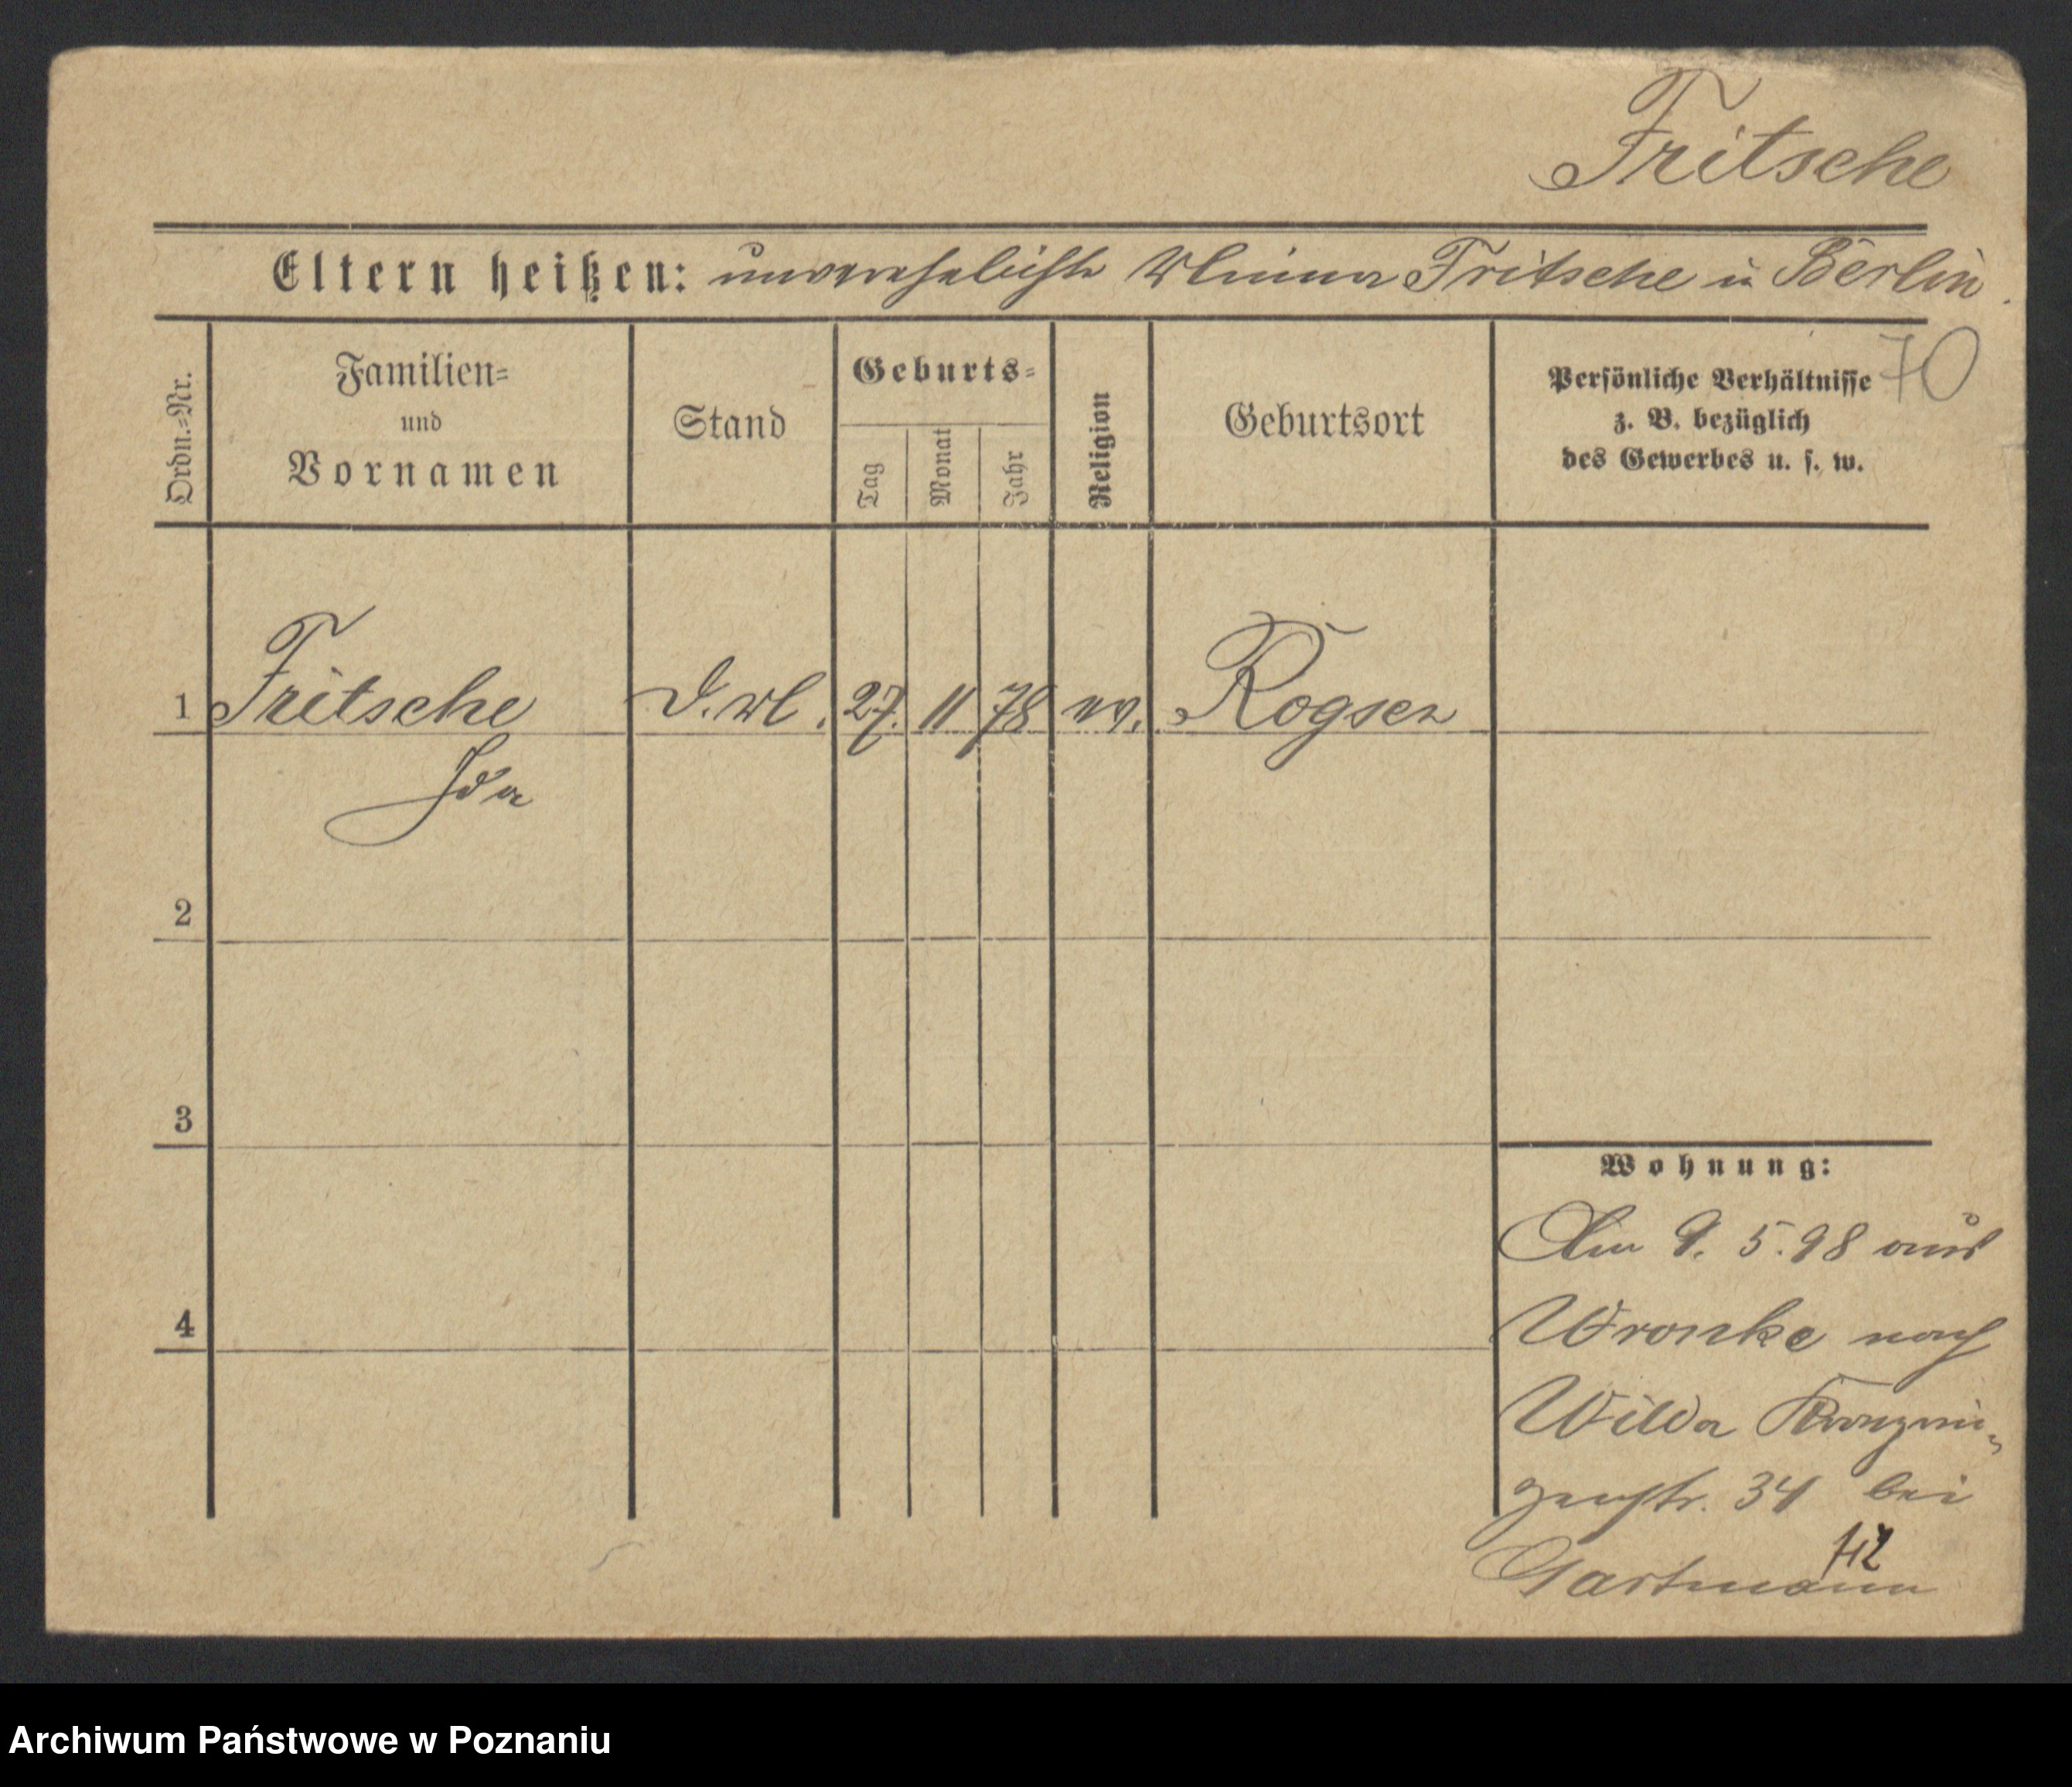 Fritsche
Eltern heißen: unverehelichte Minna Fritsche in Berlin.
70
Ordn.=Nr.
Familien=
und
Vornamen
Stand
Geburts=
Tag
Monat
Jahr
Religion
Geburtsort
Persönliche Verhältnisse
z. B. bezüglich
des Gewerbes u. s. w.
1 Fritsche 27. 11 78 ev. Rogsen
Ida
2
3
4
Wohnung:
Am 9. 5. 98 aus
Wronke nach
Wilda Kronprin-
zenstr. 34 bei
Gartmann
Archiwum Państwowe w Poznaniu